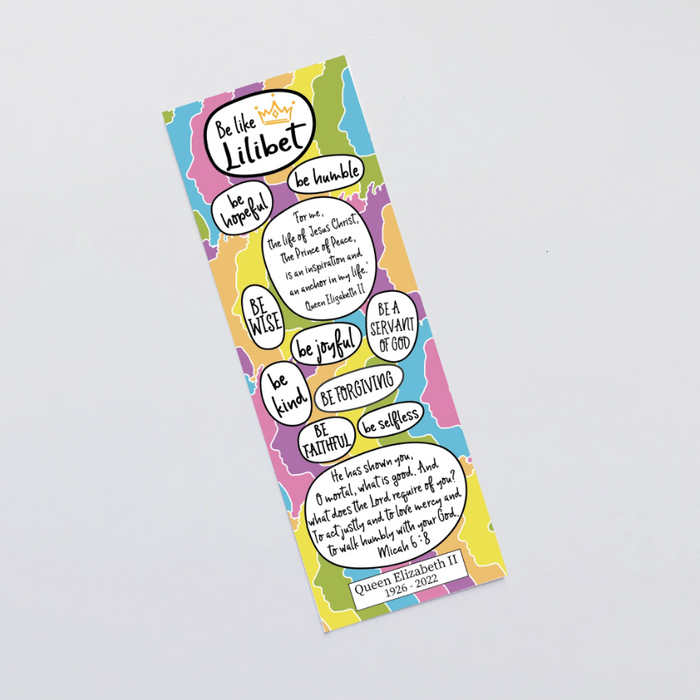 Be like
Lilibet
be humble
be
hopeful
'For me,
the life of Jesus Christ,
the Prince of Peace,
is an inspiration and
an anchor in my life.'
Queen Elizabeth II
BE
WISE
BE A
SERVANT
OF GOD
be joyful
be
kind
BE FORGIVING
BE
FAITHFUL
be selfless
He has shown you,
O mortal, what is good. And
what does the Lord require of you?
To act justly and to love mercy and
to walk humbly with your God.
Micah 6:8
Queen Elizabeth II
1926 - 2022